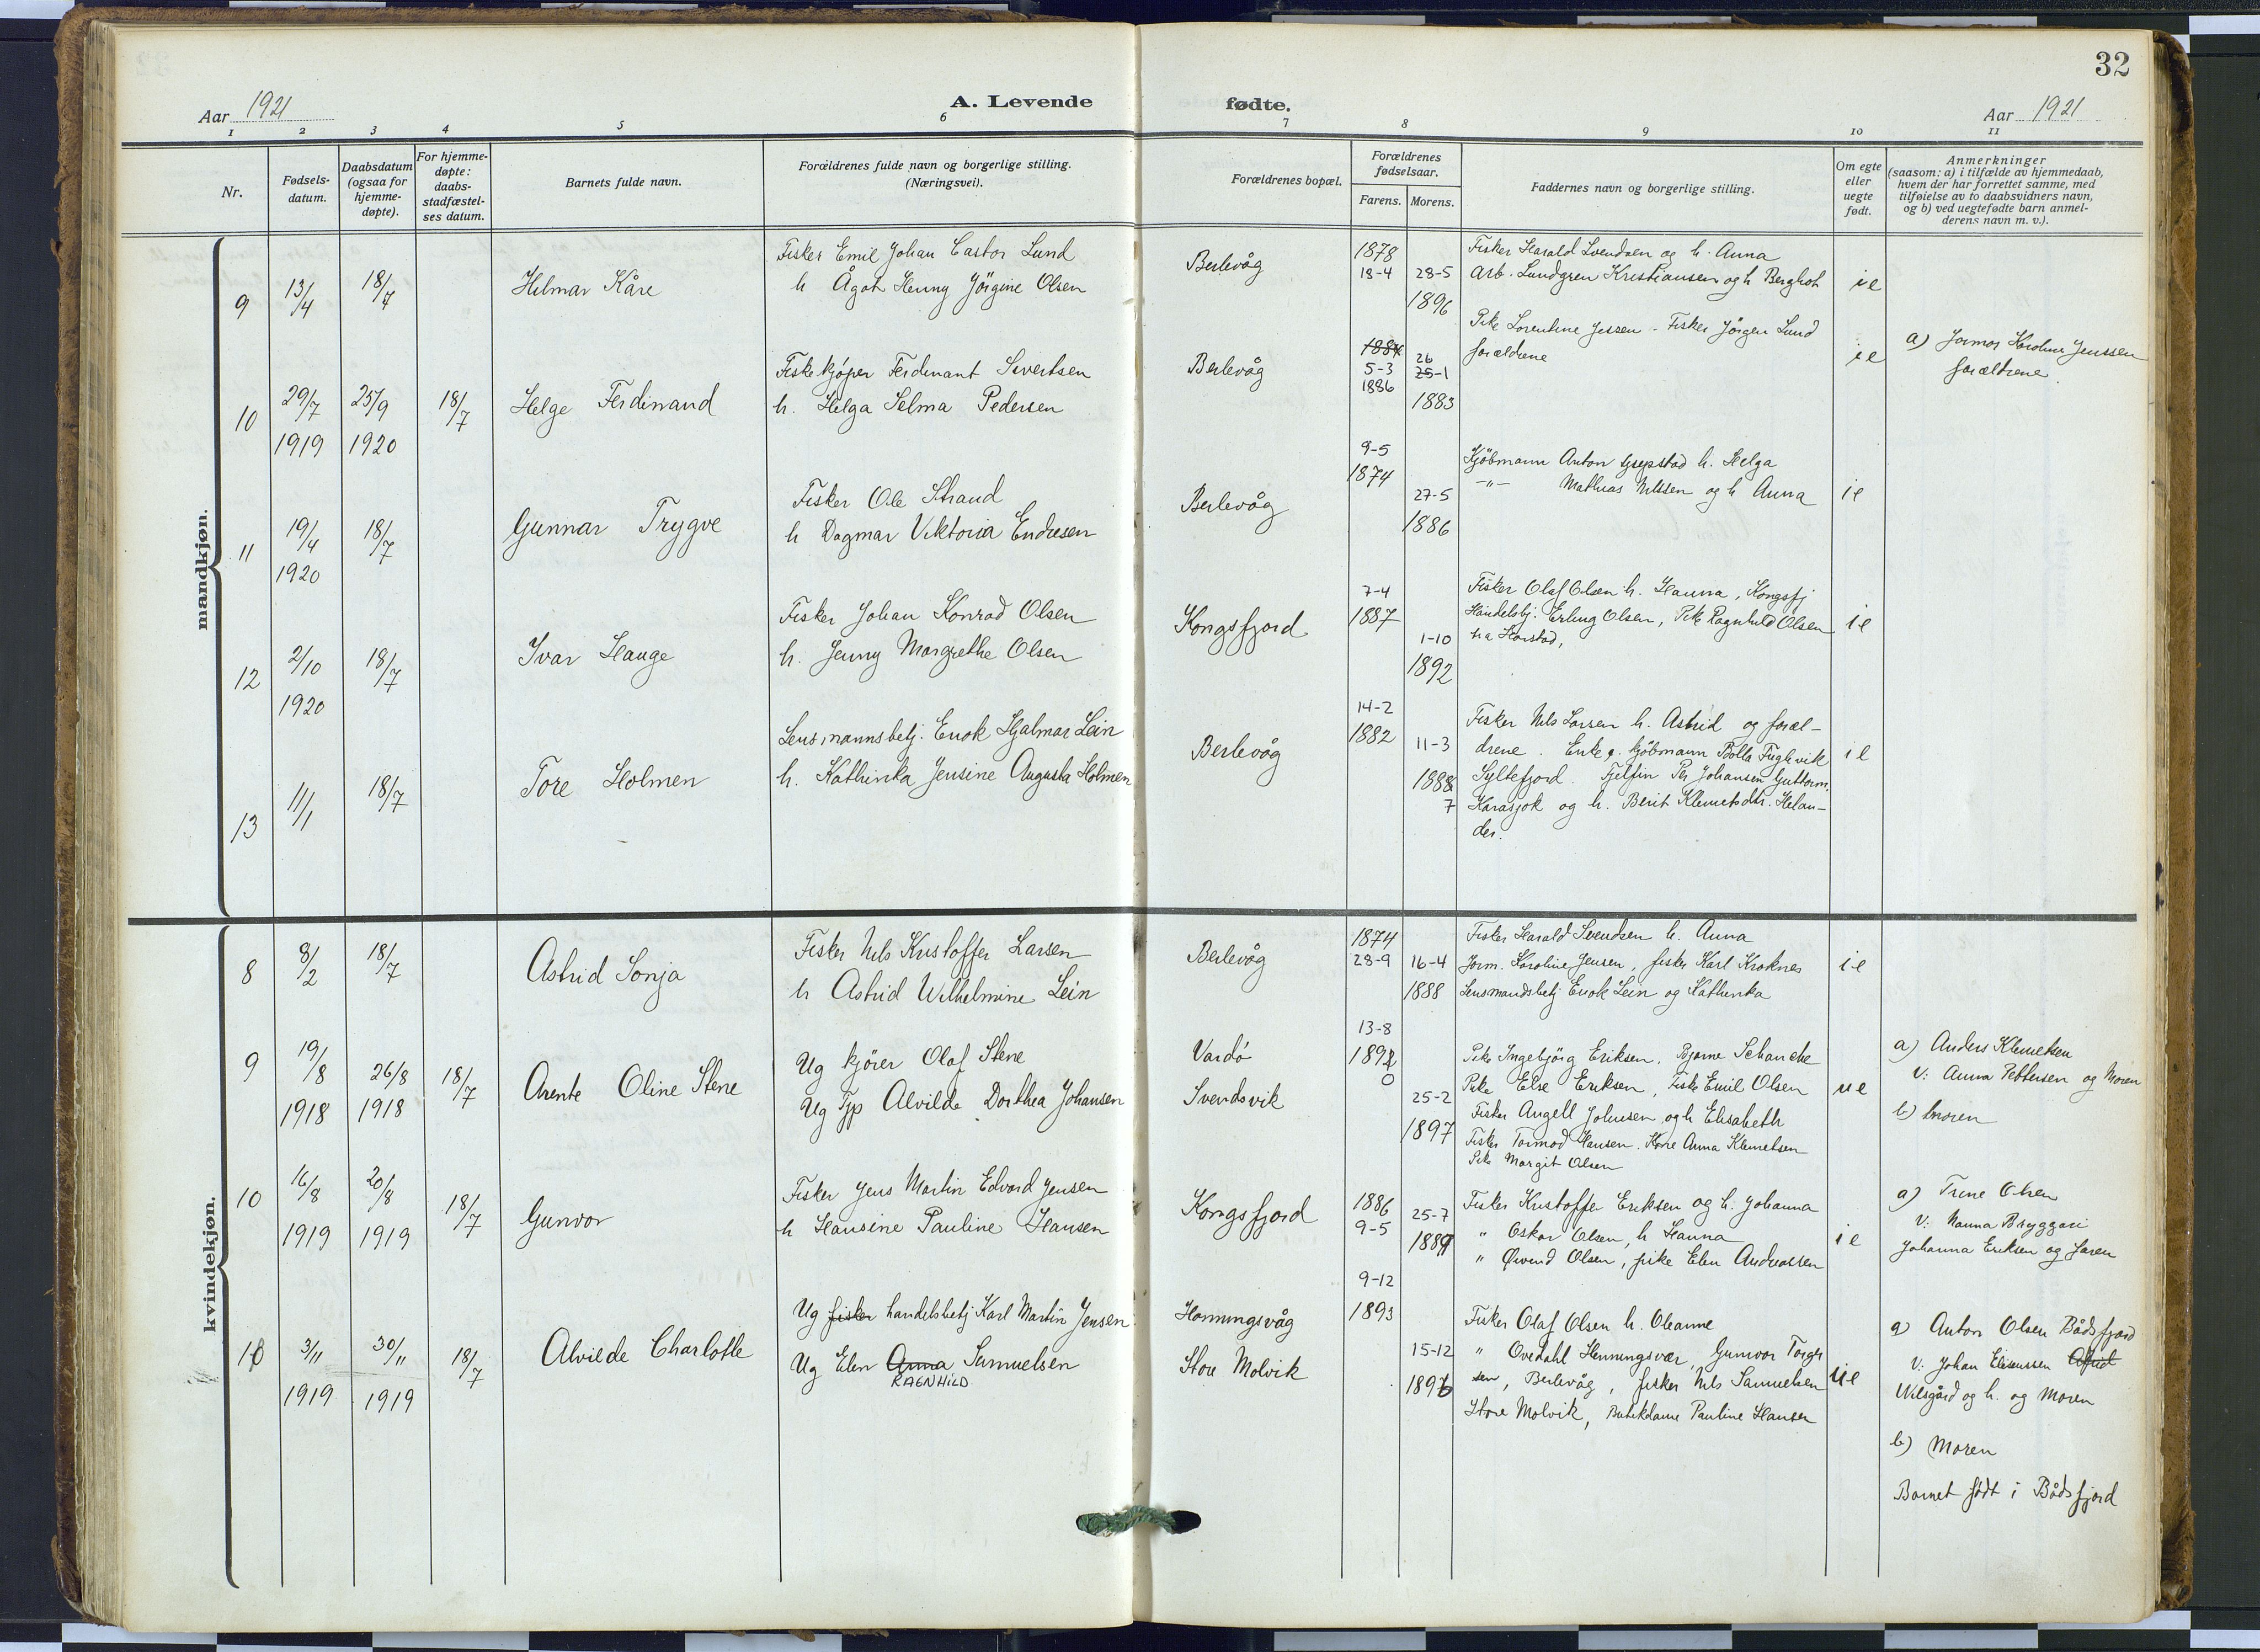 32
Aar 1921
A. Levende fødte.
Aar 1921
1 2 3 4 5 6 7 8 9 10 11
Nr.
Fødsels-
datum.
Daabsdatum
(ogsaa for
hjemme-
døpte).
For hjemme-
døpte:
daabs-
stadfæstel-
ses datum.
Barnets fulde navn.
Forældrenes fulde navn og borgerlige stilling.
(Næringsvei).
Forældrenes bopæl.
Forældrenes
fødselsaar.
Farens. Morens.
Faddernes navn og borgerlige stilling.
Om egte
eller
uegte
født.
Anmerkninger
(saasom: a) i tilfælde av hjemmedaab,
hvem der har forrettet samme, med
tilføielse av to daabsvidners navn,
og b) ved uegtefødte barn anmel-
derens navn m. v.).
mandkjøn.
9
13/4
18/7
Hilmar Kåre
Fisker Emil Johan Castor Lund
h Ågot Henny Jörgine Olsen
Berlevåg
1878
18-4
28-5
1896
Fisker Harald Svendsen og h. Anna
Arb. Lundgren Kristiansen og h Bergliot
Pike Lorentine Jessen - Fisker Jörgen Lund
ie
10
29/7
1919
25/9
1920
18/7
Helge Ferdinand
Fiskekjøper Ferdinant Sivertsen
h. Helga Selma Pedersen
Berlevåg
1884
5-3
1886
26
25-1
1883
forældrene
ie
a) Jormor Karoline Jenssen
forældrene.
11
19/4
1920
18/7
Gunnar Trygve
Fisker Ole Strand
h Dagmar Viktoria Endresen
Berlevåg
9-5
1874
27-5
1886
Kjöbmann Anton h. Helga
-"- Mathias Nilssen og h Anna
ie
12
2/10
1920
18/7
Ivar Hauge
Fisker Johan Konrad Olsen
h. Jenny Margrethe Olsen
Kongsfjord
7-4
1887
1-10
1892
Fisker Olaf Olsen h. Hanna, Kongsfj
Handelsbj. Erling Olsen, Pike Ragnhild Olsen
fra Harstad,
ie
13
11/1
18/7
Tore Holmen
Lensmannsbetj. Enok Hjalmar Lein
h. Kathinka Jensine Augusta Holmen
Berlevåg
14-2
1882
11-3
1888
7
Fisker Nils Larsen h. Astrid og foræl-
drene. Enke e. kjöbmann Bolla Fuglevik
Syltefjord. Fjelfin Per Johansen Guttorm,
Karasjok og h. Berit Klemetsdtr. Helan-
der.
ie
kvindekjøn.
8
8/2
18/7
Astrid Sonja
Fisker Nils Kristoffer Larsen
h Astrid Wilhelmine Lein
Berlevåg
1874
28-9
16-4
1888
Fisker Harald Svendsen h. Anna
Jorm. Karoline Jensen, fisker Karl Kroknes
Lensmandsbetj Enok Lein og Kathinka
ie
9
19/8
1918
26/8
1918
18/7
Arente Oline Stene
Ug kjörer Olaf Stene
Ug Tjp Alvilde Dorthea Johansen
Vardö
Svendsvik
13-8
1892
0
25-2
1897
Pike Ingebjörg Eriksen. Bjarne Schanche
Pike Else Eriksen, Fisker Emil Olsen
Fisker Angell Johnsen og h Elisabeth
Fisker Tormod Hansen. Kone Anna Klemetsen
Pike Margit Olsen
ue
a) Anders Klemetsen
V: Anna Pettersen og Moren
b) moren
10
16/8
1919
20/8
1919
18/7
Gunvor
Fisker Jens Martin Edvard Jensen
h Hansine Pauline Hansen
Kongsfjord
1886
9-5
25-7
1889
Fisker Kristoffer Eriksen og h. Johanna
" Oskar Olsen, h Hanna
" Øivind Olsen, pike Elen Andreassen
ie
a) Trine Olsen
V: Nanna Bryggari
Johanna Eriksen og faren
11
3/11
1919
30/11
1919
18/7
Alvilde Charlotte
Ug fisker handelsbetj Karl Martin Jensen
Ug Elen Anna Samuelsen
RAGNHILD
Honningsvåg
Store Molvik
9-12
1893
15-12
1896
Fisker Olaf Olsen h. Oleanne
" Ovedahl Henningsvær, Gunvor Torger
sen, Berlevåg, fisker Nils Samuelsen
Store Molvik, Butikdame Pauline Hansen
ue
a) Anton Olsen Bådsfjord
V: Johan Eliseussen
Nilsgård og h. og Moren
b) Moren
Barnet født i Bådsfjord